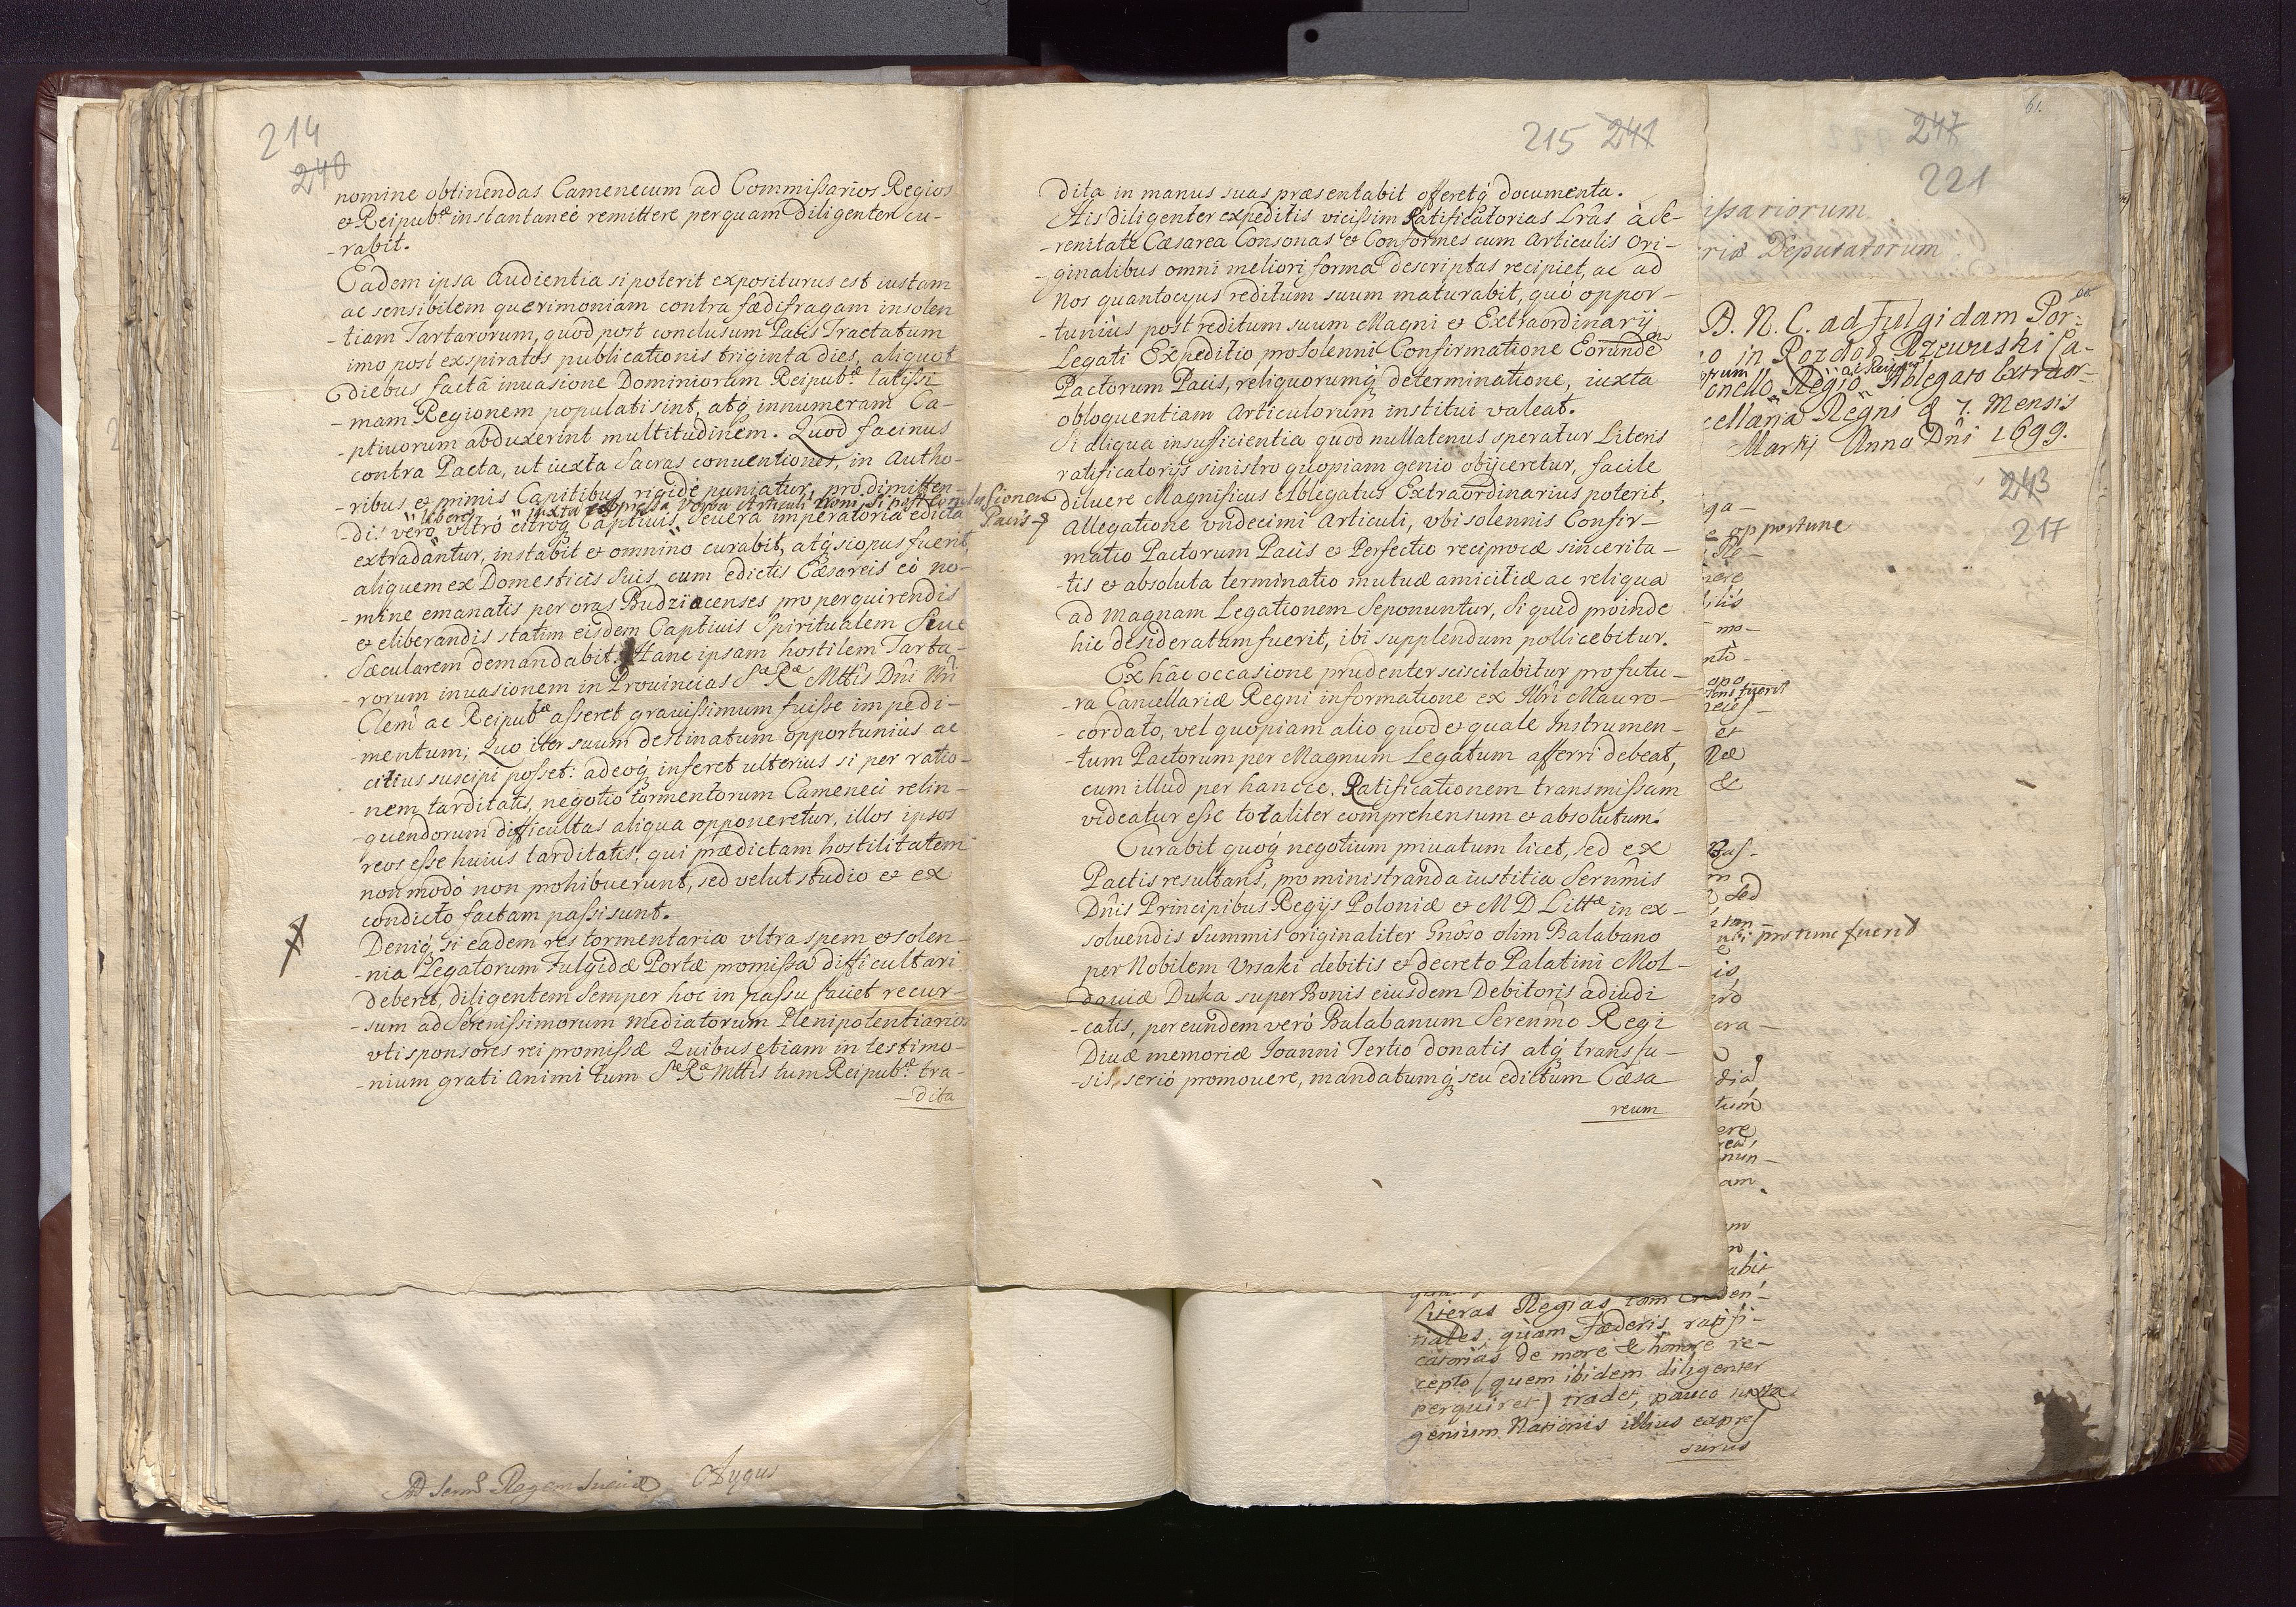 214
240
nomine obtinendas Camenecum ad Commissarios Regios
et Reipubᵉ instantaneè remittere perquam diligenter cu-
-rabit.
Eadem ipsa Audientia si poterit expositurus est iustam
ac sensibilem querimoniam contra fædifragam insolen
-tiam Tartarorum, quod post conclusum Pacis Tractatum
imo post expiratos publicationis triginta dies, aliquot
diebus factâ inuasione Dominiorum Reipubᵉ latissi
-mam Regionem populati sint, atq́ innumeram Ca-
-ptiuorum abduxerint multitudinem. Quod facinus
contra Pacta, ut iuxta Sacras conuentiones, in Autho-
-ribus et primis Capitibus rigidè puniatur, pro dimitten-
liberè iuxta expressa verba Articuli Noni, si post conclusionem
Pacis
-dis verò vltrò citroq́ Captiuis, seuera imperatoria edicta
extradantur, instabit et omninò curabit, atq́ si opus fuerit
aliquem ex Domesticis suis cum edictis Cæsareis eò no-
-mine emanatis per oras Budziacenses pro perquirendis
et eliberandis statim eisdem Captiuis Spiritualem Siue
Sæcularem demandabit. Hanc ipsam hostilem Tarta-
-rorum inuasionem in Prouincias Sᵃᵉ Rᵃᵉ Mttis Dni Nri
Clemi ac Reipubᵉ asseret grauissimum fuisse impedi-
-mentum; Quo iter suum destinatum opportunius ac
citius suscipi posset: adeoq́ inseret ulterius si per ratio-
-nem tarditatis, negotio tormentorum Cameneci relin-
-quendorum difficultas aliqua opponeretur, illos ipsos
reos esse huius tarditatis, qui prædictam hostilitatem
non modò non prohibuerunt, sed velut studio et ex
condicto factam passi sunt.
Deniq́ si eadem res tormentaria vltra spem et solen-
-nia Legatorum Fulgidæ Portæ promissa difficultari
deberet, diligentem semper hoc in passu faciet recur-
-sum ad Serenissimorum Mediatorum Plenipotentiarios
vti sponsores rei promissæ Quibus etiam in testimo-
-nium grati Animi tum Sᵃᵉ Rᵃᵉ Mttis tum Reipubᵉ tra-
-dita
215 241
dita in manus suas præsentabit offeretq́ documenta.
His diligenter expeditis vicissim Ratificatorias Lrâs à Se-
-renitate Cæsarea Consonas et Conformes cum Articulis Ori-
-ginalibus omni meliori forma descriptas recipiet, ac ad
Nos quantocyus reditum suum maturabit, quò oppor-
-tuniùs post reditum suum Magni et Extraordinarij
Legati Expeditio pro Solenni Confirmatione Eorundem
Pactorum Pacis, reliquorumq́ determinatione, iuxta
obloquentiam Articulorum institui valeat.
Si aliqua insufficientia quod nullatenus speratur Literis
ratificatorijs sinistro quopiam genio obijceretur, facile
diluere Magnificus Ablegatus Extraordinarius poterit,
Allegatione vndecimi Articuli, vbi solennis Confir-
matio Pactorum Pacis et Perfectio reciprocæ sincerita-
-tis et absoluta terminatio mutuæ amicitiæ ac reliqua
ad Magnam Legationem Seponuntur, Si quid proinde
hic desideratum fuerit, ibi supplendum pollicebitur.
Ex hâc occasione prudenter sciscitabitur pro futu-
ra Cancellariæ Regni informatione ex Illri Mauro-
-cordato, vel quopiam alio quod et quale Instrumen-
-tum Pactorum per Magnum Legatum afferri debeat,
cum illud per hancce Ratificationem transmissam
videatur esse totaliter comprehensum et absolutum.
Curabit quoq́ negotium priuatum licet, sed ex
Pactis resultans, pro ministranda iustitia Serenmis
Dnis Principibus Regijs Poloniæ et M D Littᵃᵉ in ex-
soluendis Summis originaliter Gnoso olim Balabano
per Nobilem Vrsaki debitis et decreto Palatini Mol-
dauiæ Duka super Bonis eiusdem Debitoris adiudi
-catis, per eundem verò Balabanum Serenmo Regi
Diuæ memoriæ Ioanni Tertio donatis atq́ transfu-
-sis, seriò promouere, mandatumq́ seu edictum Cæsa
reum
61.
247
221
issariorum
riæ Deputatorum
60.
B. N. C. ad fulgidam Por-
o in Rozdol Rzewuski Ca-
Regio Ablegato Extraor-
cellaria Regni d 7. Mensis
Martij Anno Dni 1699.
243
217
opportune
sed
ubi pro tunc fuerit
literas Regias tam Creden-
tiales, quam Fæderis ratifi-
catorias de more & honore re-
cepto (quem ibidem diligenter
perquiret) tradet, pauco iuxta
genium Nationis illius expres
surus
Ad Sermum Regem Sueciæ